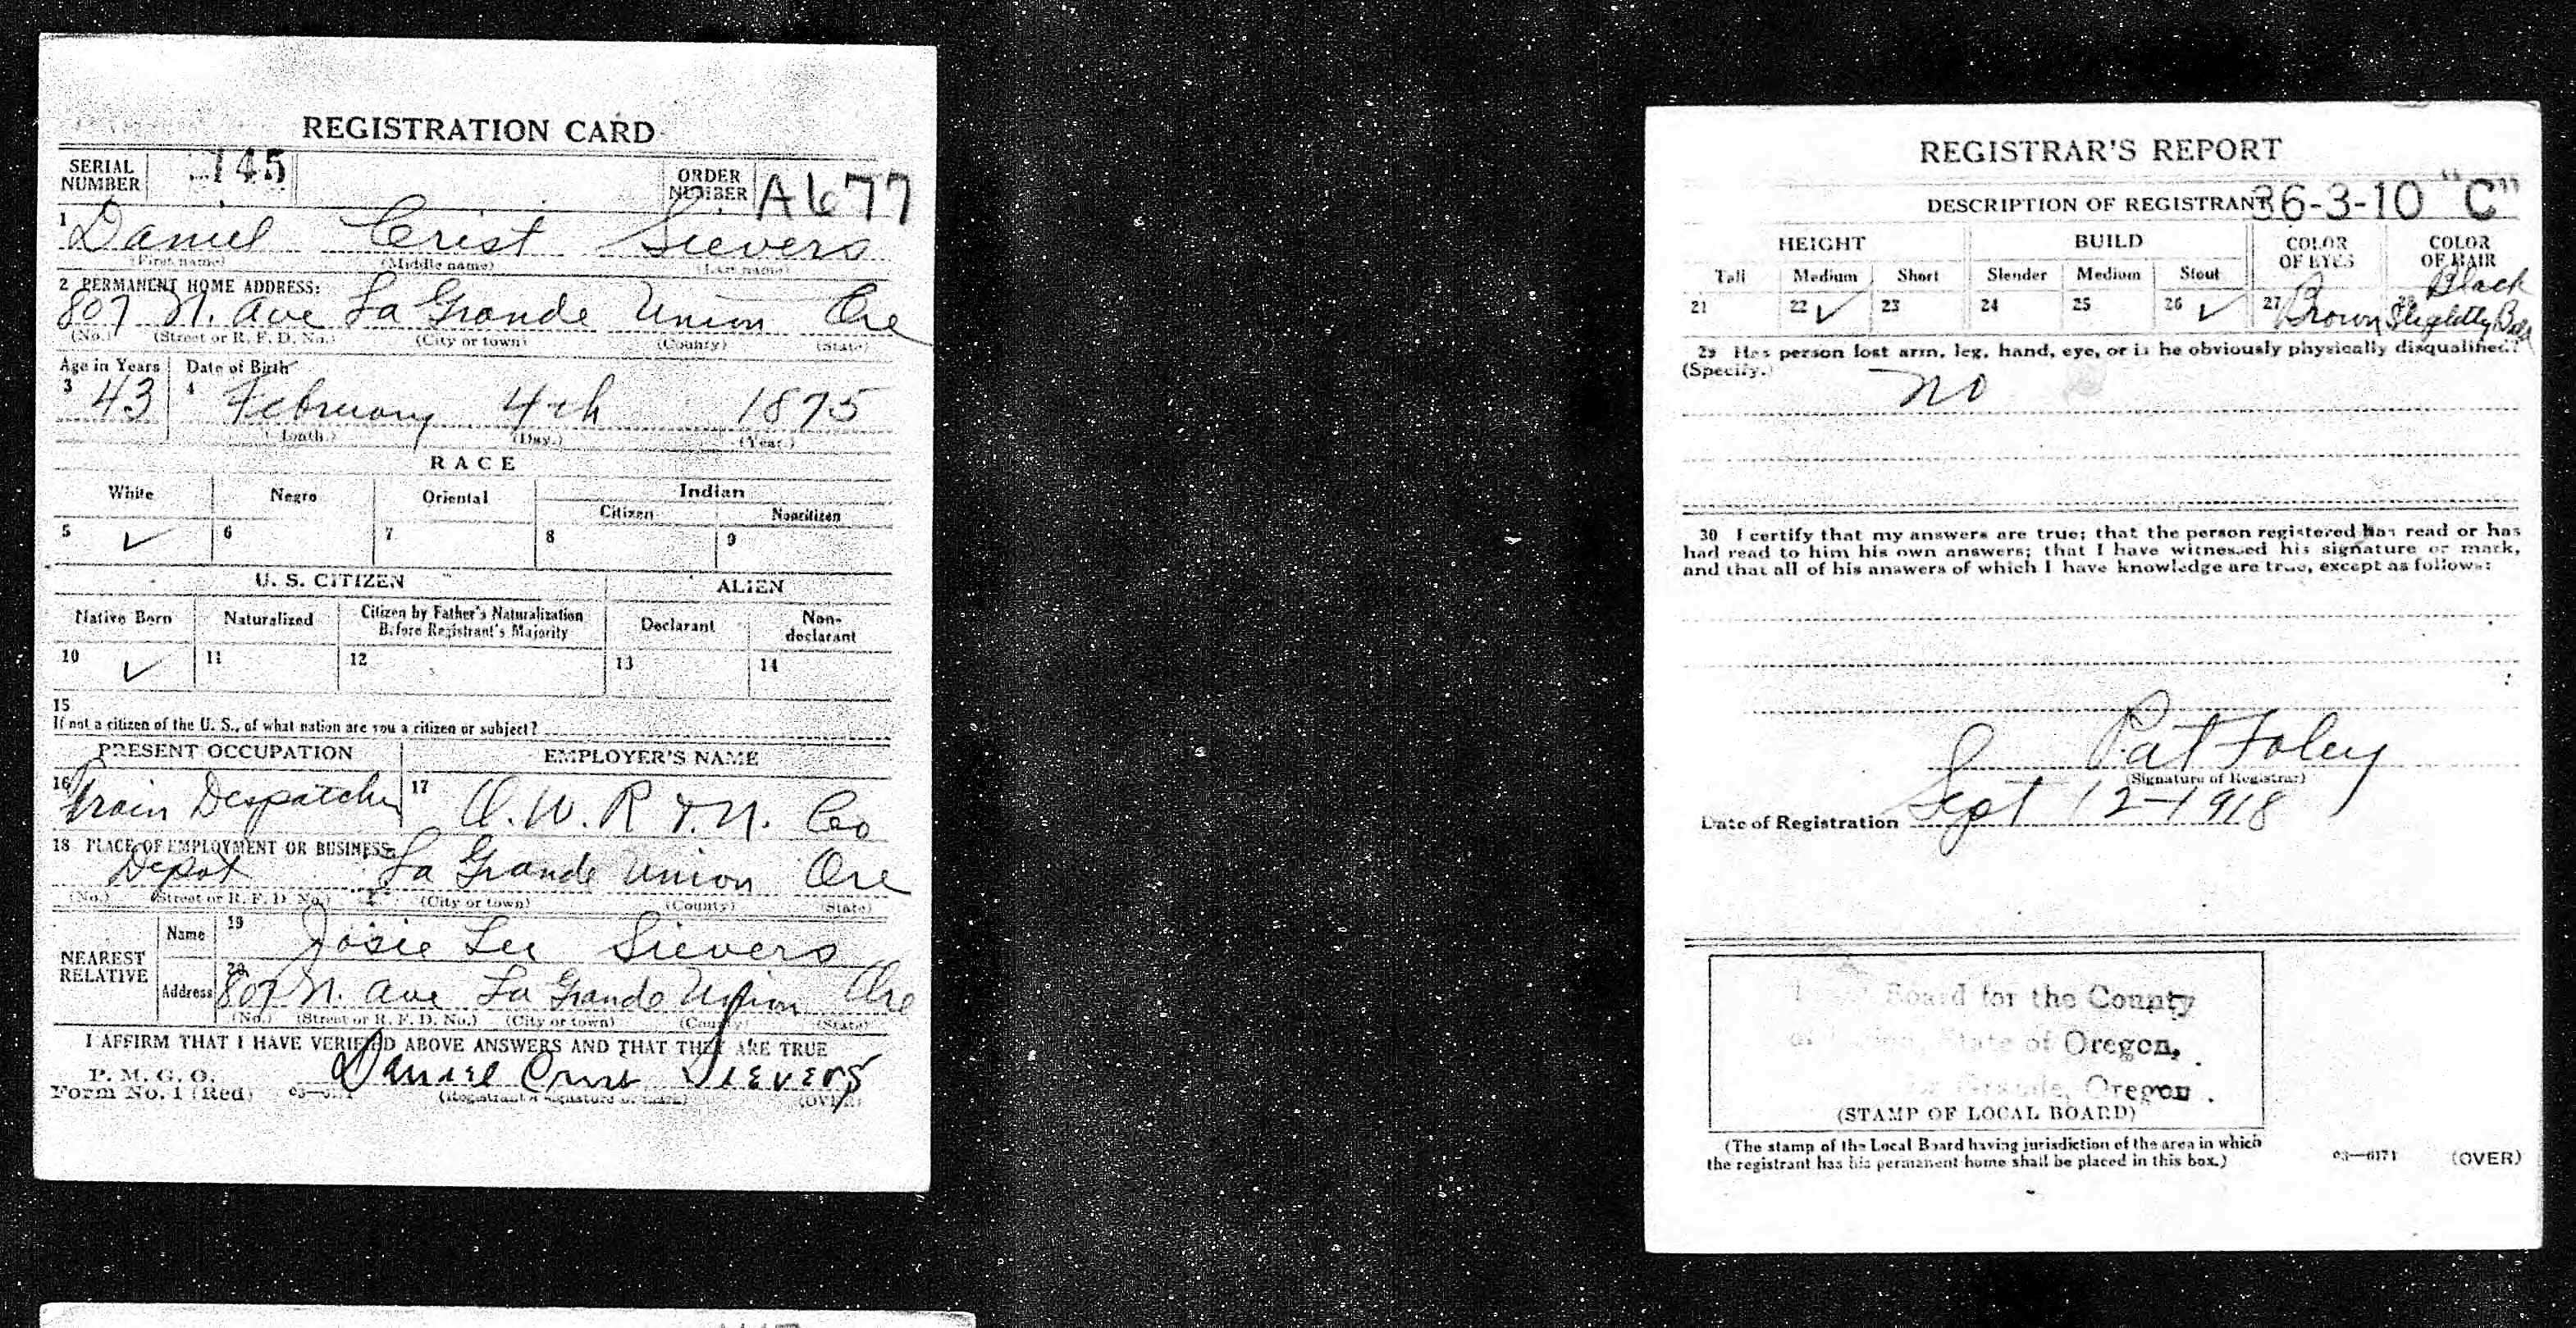 REGISTRATION CARD
SERIAL NUMBER 145 ORDER NUMBER A677
1 Daniel Crist Sievers
(First name) (Middle name) (Last name)
2 PERMANENT HOME ADDRESS:
807 N. Ave La Grande Union Ore
(No.) (Street or R. F. D. No.) (City or town) (County) (State)
Age in Years Date of Birth
3 43 4 February 4th 1875
(Month.) (Day.) (Year.)
RACE
White Negro Oriental Indian
Citizen Noncitizen
5 ✓ 6 7 8 9
U. S. CITIZEN ALIEN
Native Born Naturalized Citizen by Father's Naturalization Before Registrant's Majority Declarant Non-declarant
10 ✓ 11 12 13 14
15
If not a citizen of the U. S., of what nation are you a citizen or subject?
PRESENT OCCUPATION EMPLOYER'S NAME
16 Train Despatcher 17 O. W. R. & N. Co
18 PLACE OF EMPLOYMENT OR BUSINESS:
Depot La Grande Union Ore
(No.) (Street or R. F. D. No.) (City or town) (County) (State)
NEAREST RELATIVE
Name 19 Josie Lee Sievers
Address 20 807 N. Ave La Grande Union Ore
(No.) (Street or R. F. D. No.) (City or town) (County) (State)
I AFFIRM THAT I HAVE VERIFIED ABOVE ANSWERS AND THAT THEY ARE TRUE
P. M. G. O.
Form No. 1 (Red) Daniel Crist Sievers
(Registrant's signature or mark) (OVER)
REGISTRAR'S REPORT
36-3-10 "C"
DESCRIPTION OF REGISTRANT
HEIGHT BUILD COLOR OF EYES COLOR OF HAIR
Tall Medium Short Slender Medium Stout
21 22 ✓ 23 24 25 26 ✓ 27 Brown 28 Black Slightly Bald
29 Has person lost arm, leg, hand, eye, or is he obviously physically disqualified?
(Specify.) no
30 I certify that my answers are true; that the person registered has read or has
had read to him his own answers; that I have witnessed his signature or mark,
and that all of his answers of which I have knowledge are true, except as follows:
Pat Foley
(Signature of Registrar)
Date of Registration Sept 12-1918
Board for the County
State of Oregon,
Grande, Oregon.
(STAMP OF LOCAL BOARD)
(The stamp of the Local Board having jurisdiction of the area in which
the registrant has his permanent home shall be placed in this box.)
03—6171 (OVER)